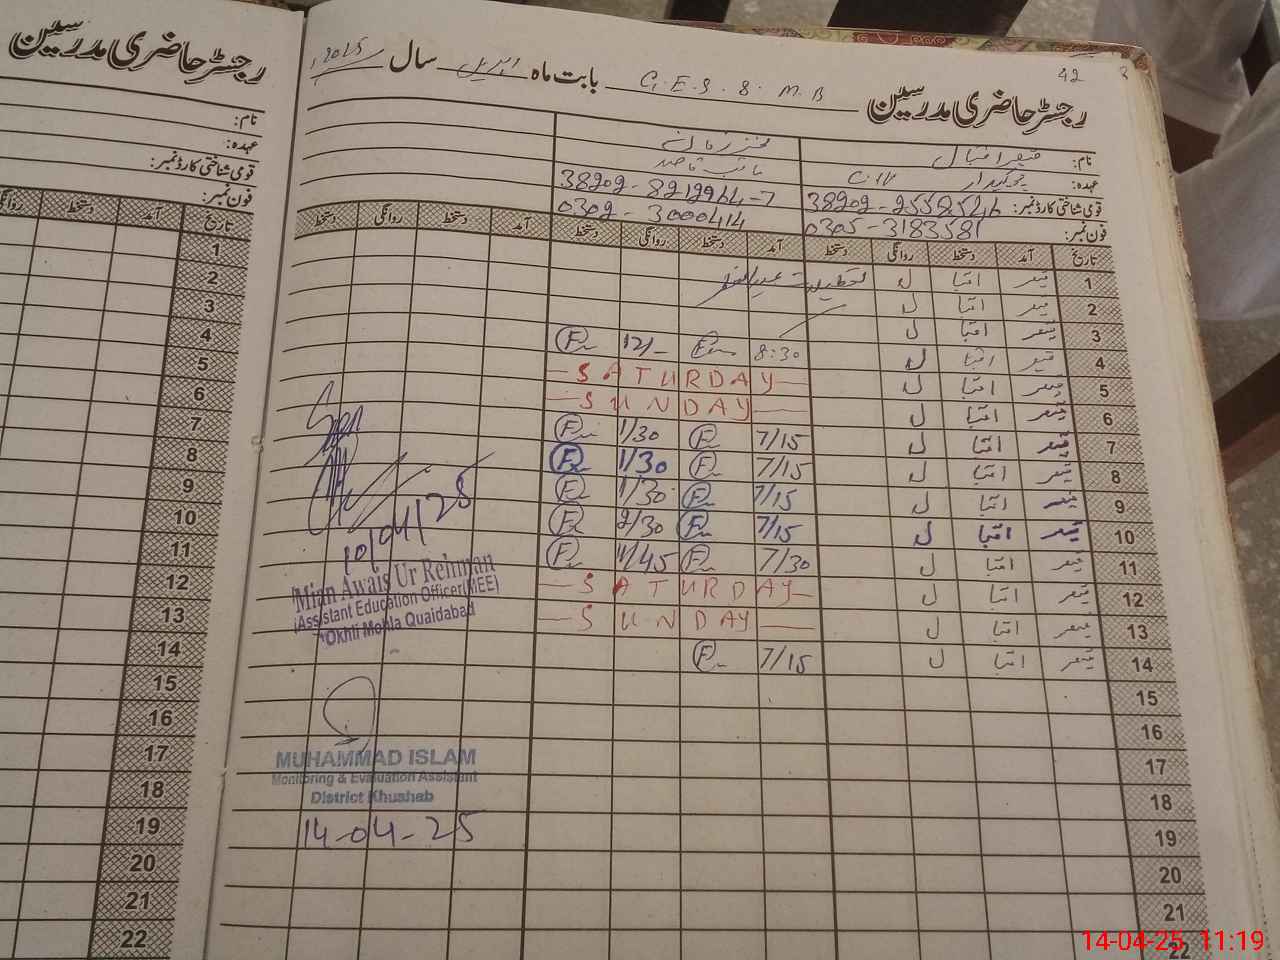 رجسٹر حاضری مدرسین
نام:
عہدہ:
قومی شناختی کارڈ نمبر:
فون نمبر:
تاریخ آمد دستخط روانگی
1
2
3
4
5
6
7
8
9
10
11
12
13
14
15
16
17
18
19
20
21
22
42
رجسٹر حاضری مدرسین G.E.S. 8. M.B بابت ماہ اپریل سال 2025
نام: قیصر اقبال
عہدہ: چوکیدار نائب قاصد
قومی شناختی کارڈ نمبر: 38202-2558546 38202-8212964-7
فون نمبر: 0305-3183581 0302-3000414
تاریخ آمد دستخط روانگی دستخط آمد دستخط روانگی دستخط آمد دستخط روانگی دستخط
1 قیصر اقبا ل تعطیلات عیدالفطر
2 قیصر اقبا ل
3 قیصر اقبا ل
4 قیصر اقبا ل 8:30 12/-
5 قیصر اقبا ل SATURDAY
6 قیصر اقبا ل SUNDAY
7 قیصر اقبا ل 7/15 1/30
8 قیصر اقبا ل 7/15 1/30
9 قیصر اقبا ل 7/15 1/30
10 قیصر اقبا ل 7/15 2/30
11 قیصر اقبا ل 7/30 11/45
12 قیصر اقبا ل SATURDAY
13 قیصر اقبا ل SUNDAY
14 قیصر اقبا ل 7/15
15
16
17
18
19
20
21
22
10/04/25
Mian Awais Ur Rehman
Assistant Education Officer(MEE)
Okhli Mohla Quaidabad
MUHAMMAD ISLAM
Monitoring & Evaluation Assistant
District Khushab
14-04-25
14-04-25 11:19